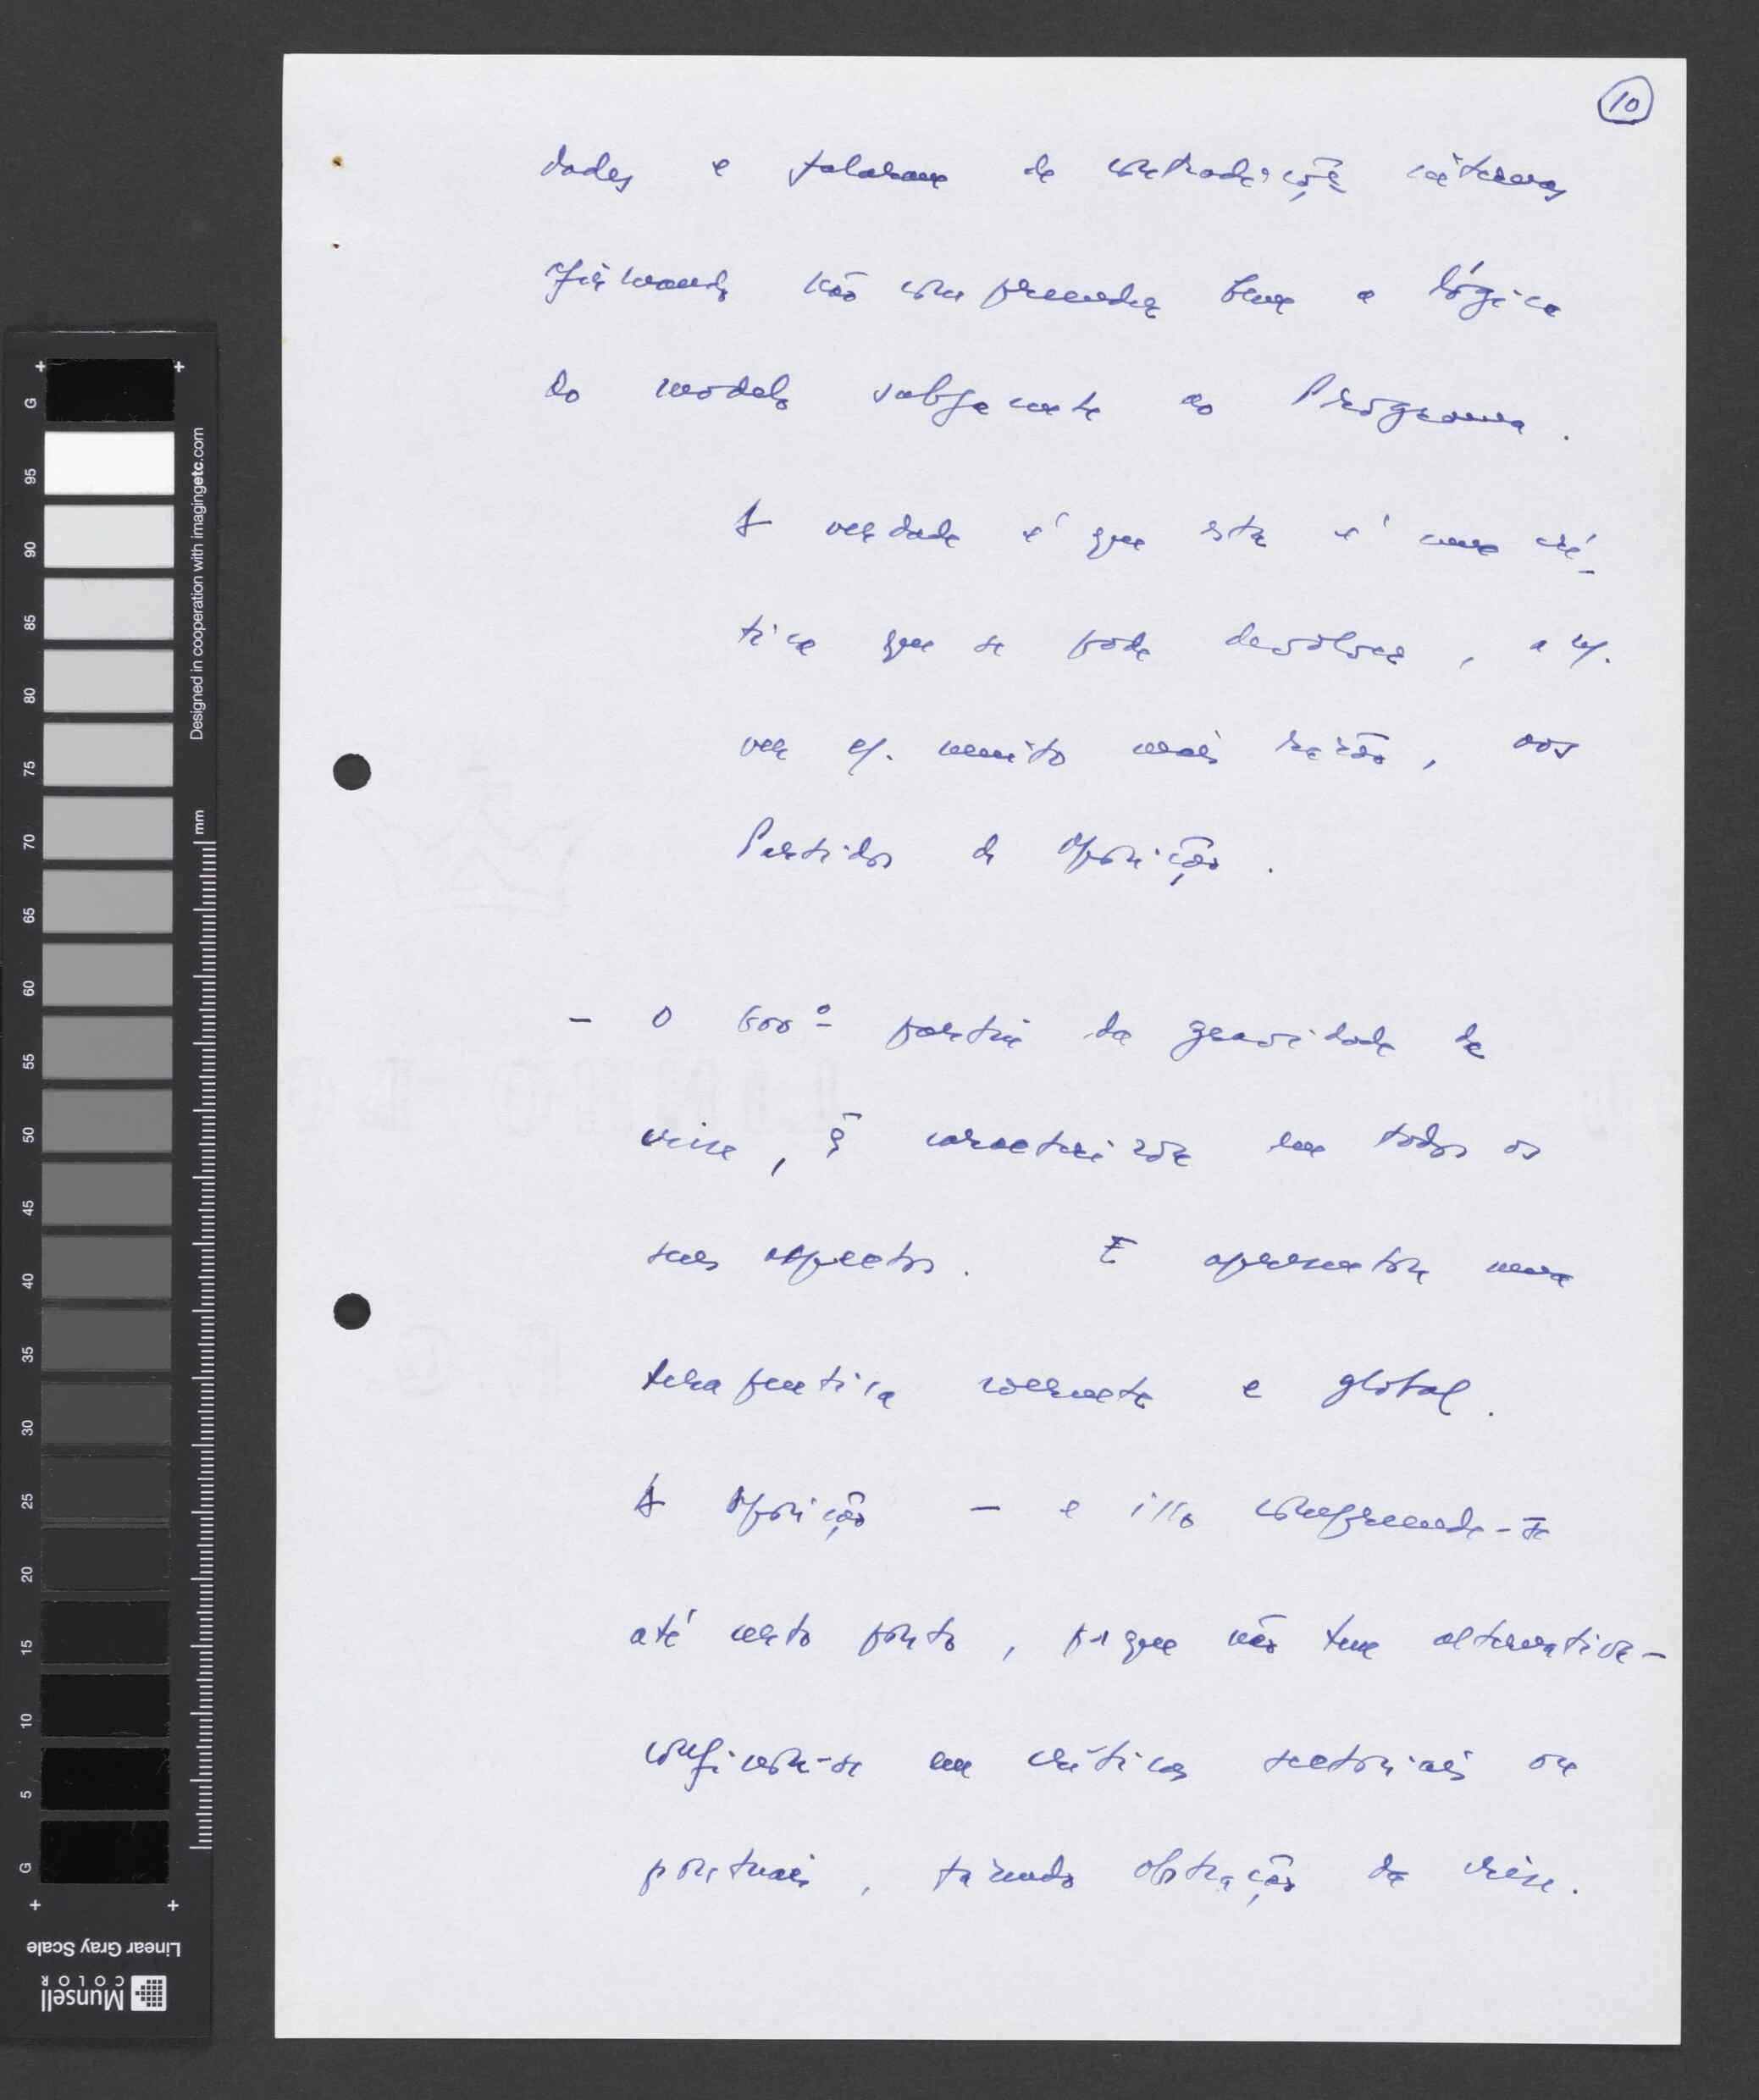 10
dades e falaram de contradições internas
afirmando não compreender bem a lógica
do modelo subjacente ao Programa.
A verdade é que esta é uma crí-
tica que se pode devolver, a m/.
ver c/. muito mais razão, aos
Partidos da Oposição.
- O Govº partiu da gravidade da
crise, q̃ caracterizou em todos os
seus aspectos. E apresentou uma
terapeutica coerente e global.
A Oposição - e isso compreende-se
até certo ponto, pq que não tem alternativa -
confinou-se em críticas sectoriais ou
pontuais, fazendo abstração da crise.
G 95 90 85 80 75 70 65 60 55 50 45 40 35 30 25 20 15 10 5 G
Designed in cooperation with imagingetc.com
mm
Linear Gray Scale
Munsell
COLOR